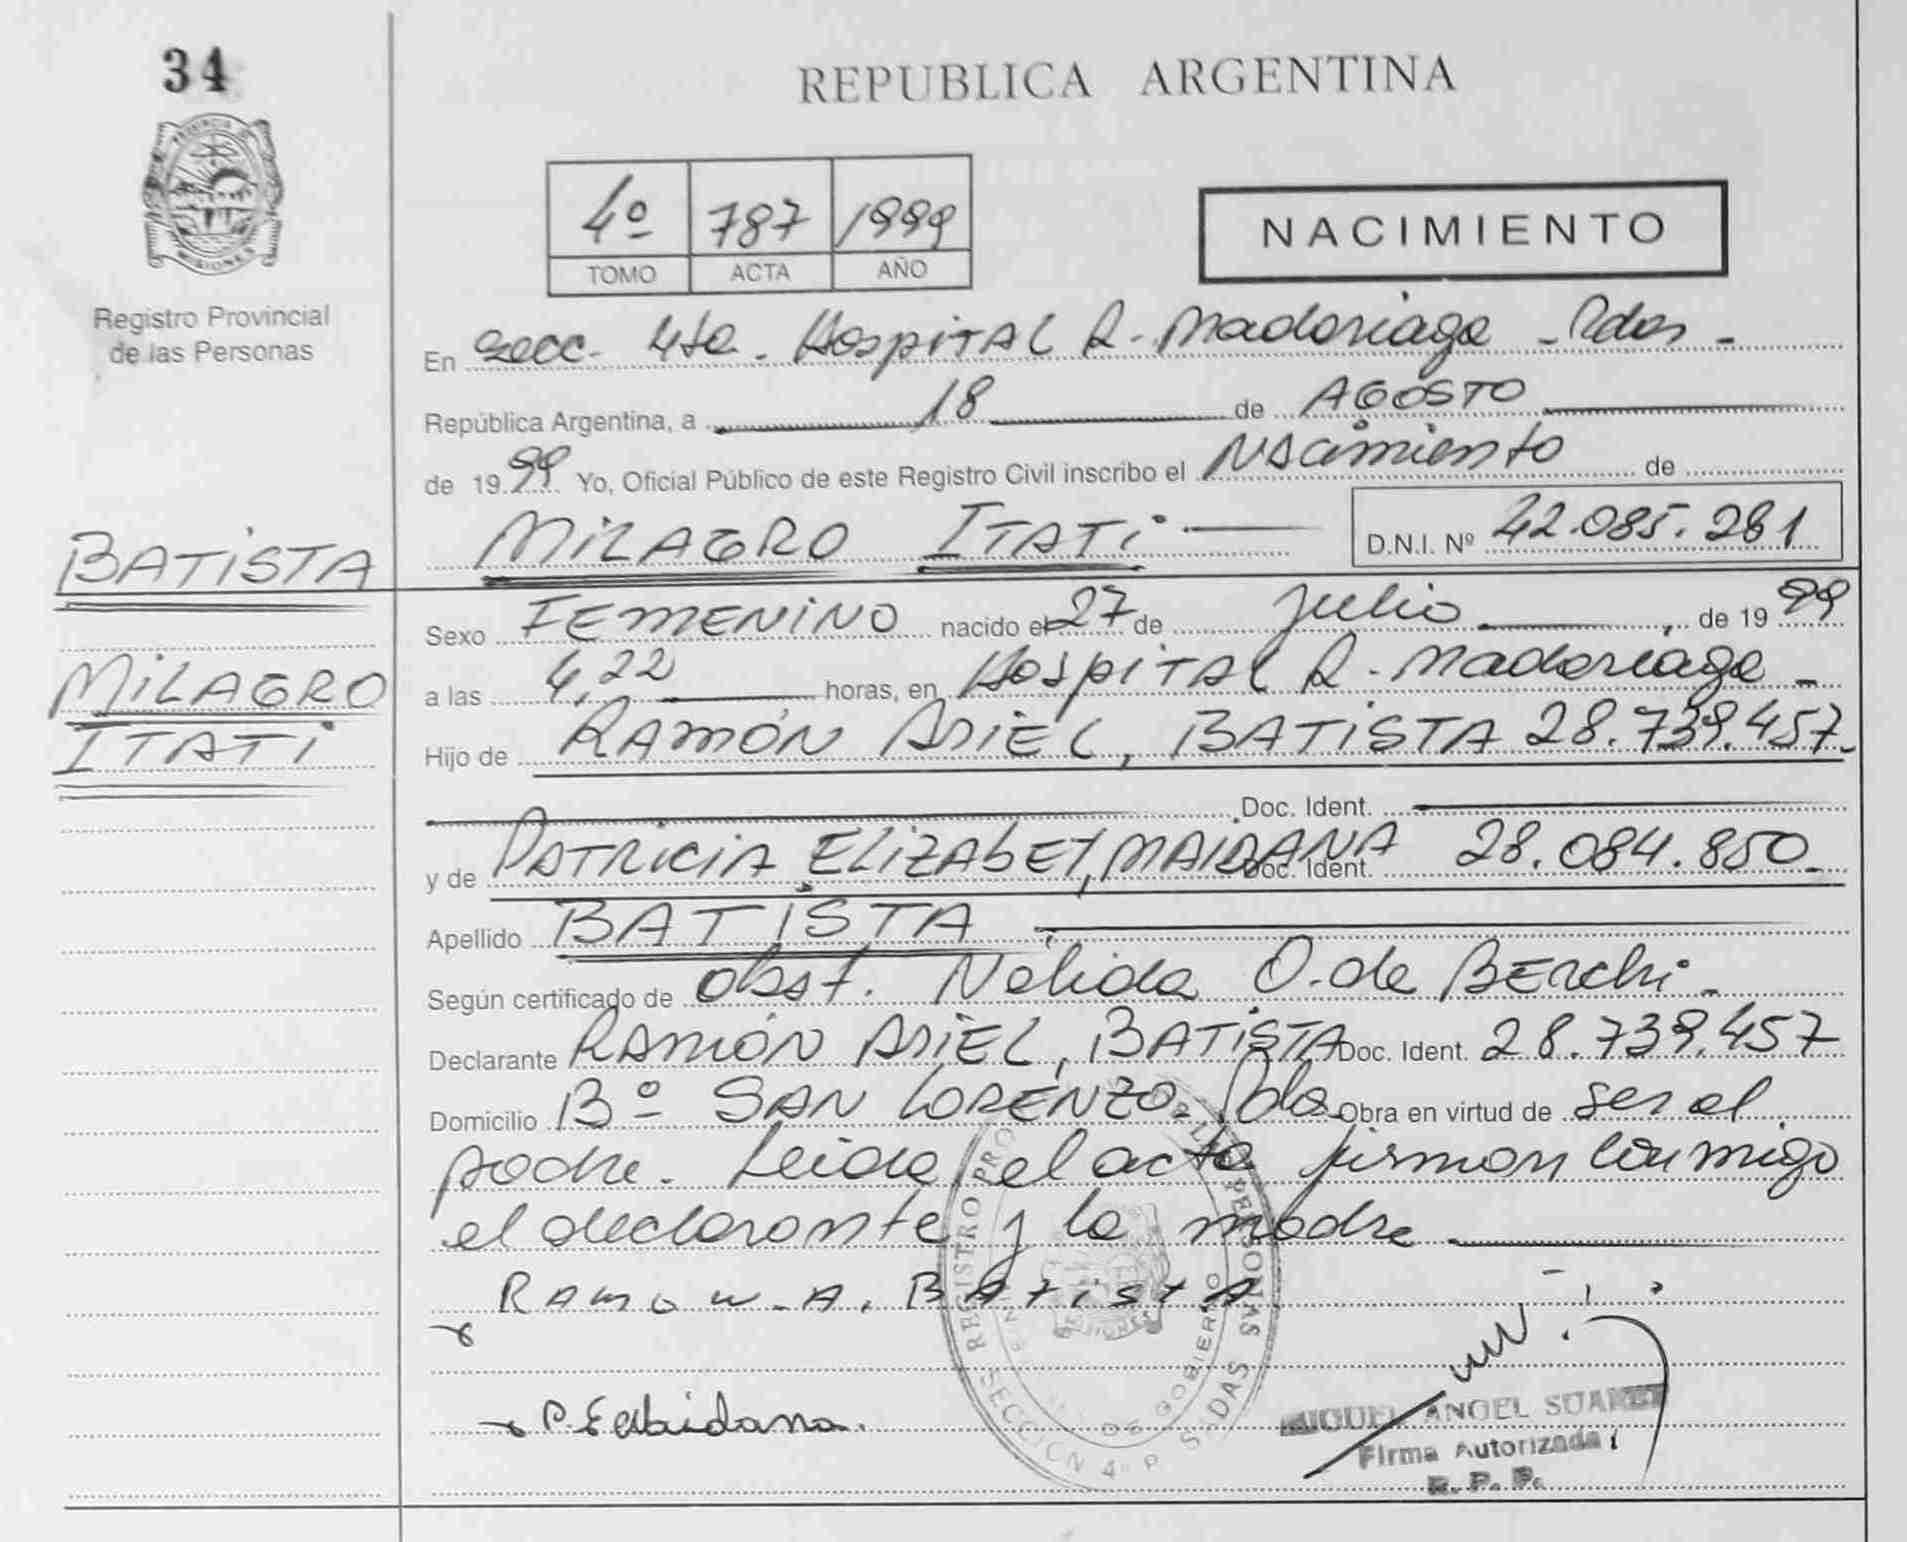 34
REPUBLICA ARGENTINA
PROVINCIA DE
MISIONES
4º 787 1999
TOMO ACTA AÑO
NACIMIENTO
Registro Provincial
de las Personas
En secc. 4ta. Hospital R. Madariaga - Pdas -
República Argentina, a 18 de AGOSTO
de 1999 Yo, Oficial Público de este Registro Civil inscribo el Nacimiento de
BATISTA
MILAGRO ITATI D.N.I. Nº 42.085.281
Sexo FEMENINO nacido el 27 de Julio, de 1999
MILAGRO
a las 4,22 horas, en Hospital R. Madariaga -
ITATI
Hijo de RAMÓN ARIEL, BATISTA 28.739.457.-
Doc. Ident.
y de PATRICIA ELIZABET, MAIDANA Doc. Ident. 28.084.850.-
Apellido BATISTA
Según certificado de obst. Nelida O. de Berchi -
Declarante RAMÓN ARIEL, BATISTA Doc. Ident. 28.739.457
Domicilio Bº SAN LORENZO. Pdas Obra en virtud de ser el
padre. Leida el acta firman conmigo
el declarante y la madre
Ramon. A. Batista
REGISTRO PRO DE LAS PERSONAS
SECCION 4ª P S DAS
DE GOBIERNO
MISIONES
MIGUEL ANGEL SUAREZ
Firma Autorizada
R. P. P.